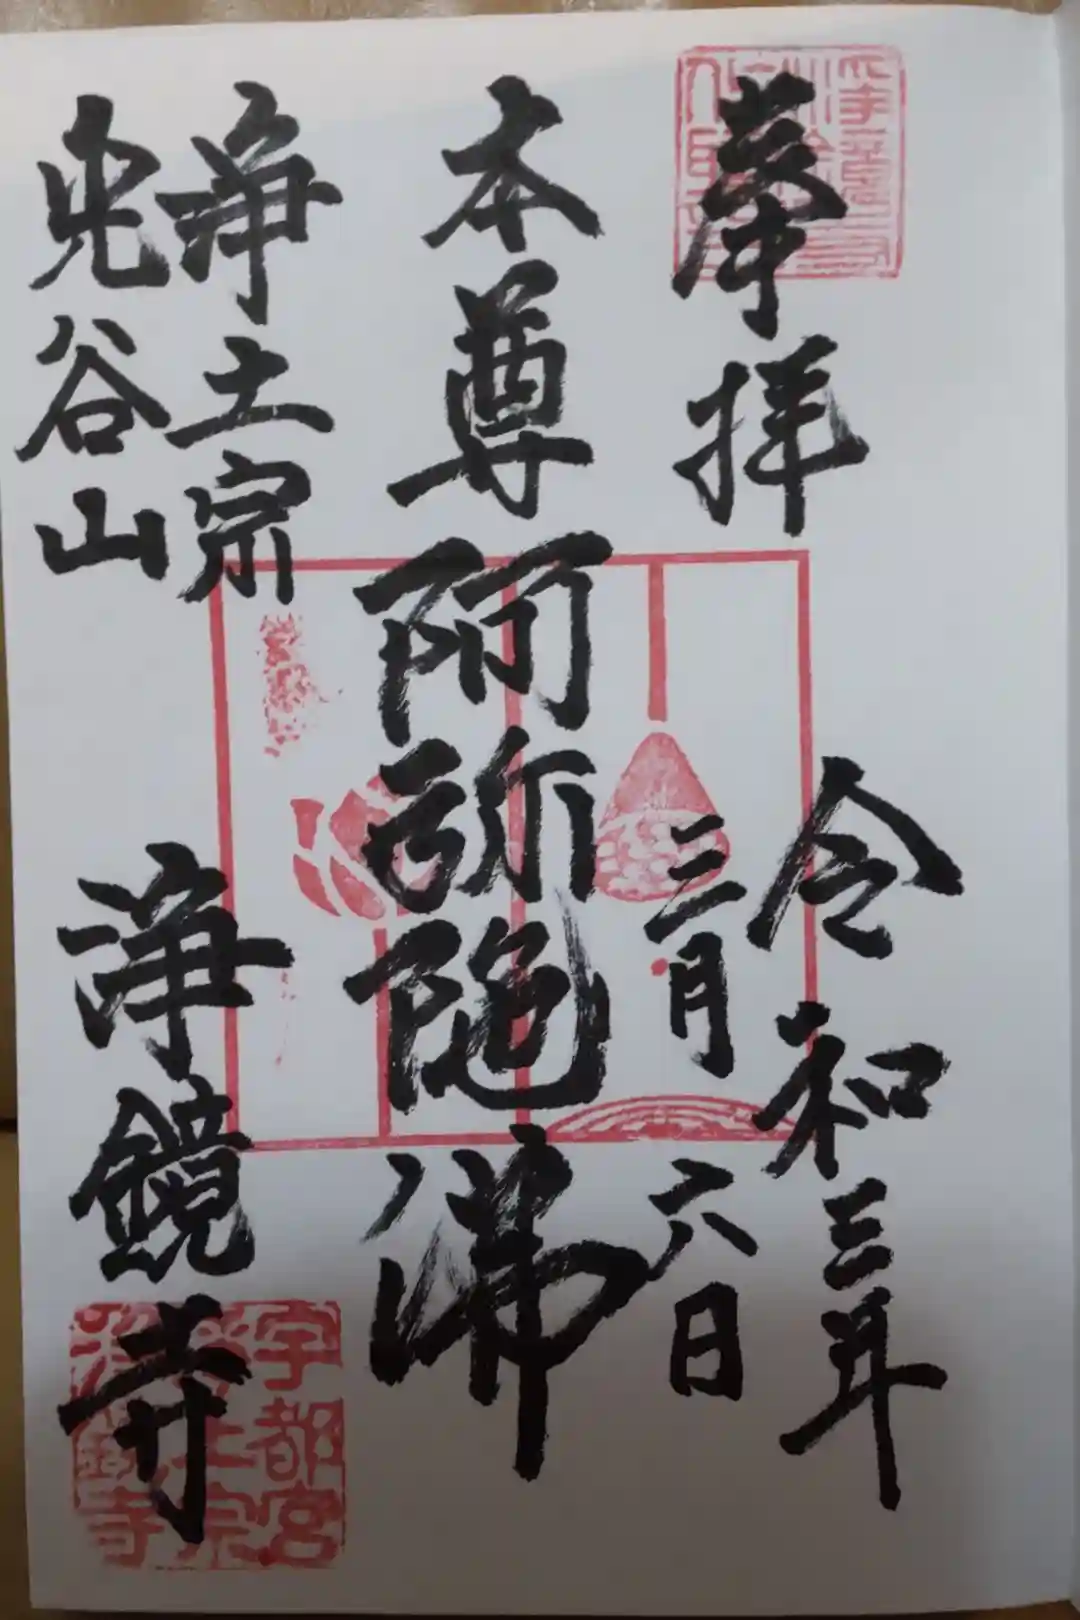 奉拝
令和三年
三月六日
本尊阿弥陀佛
浄土宗
兜谷山
浄鏡寺
宇都宮
浄土宗
浄鏡寺